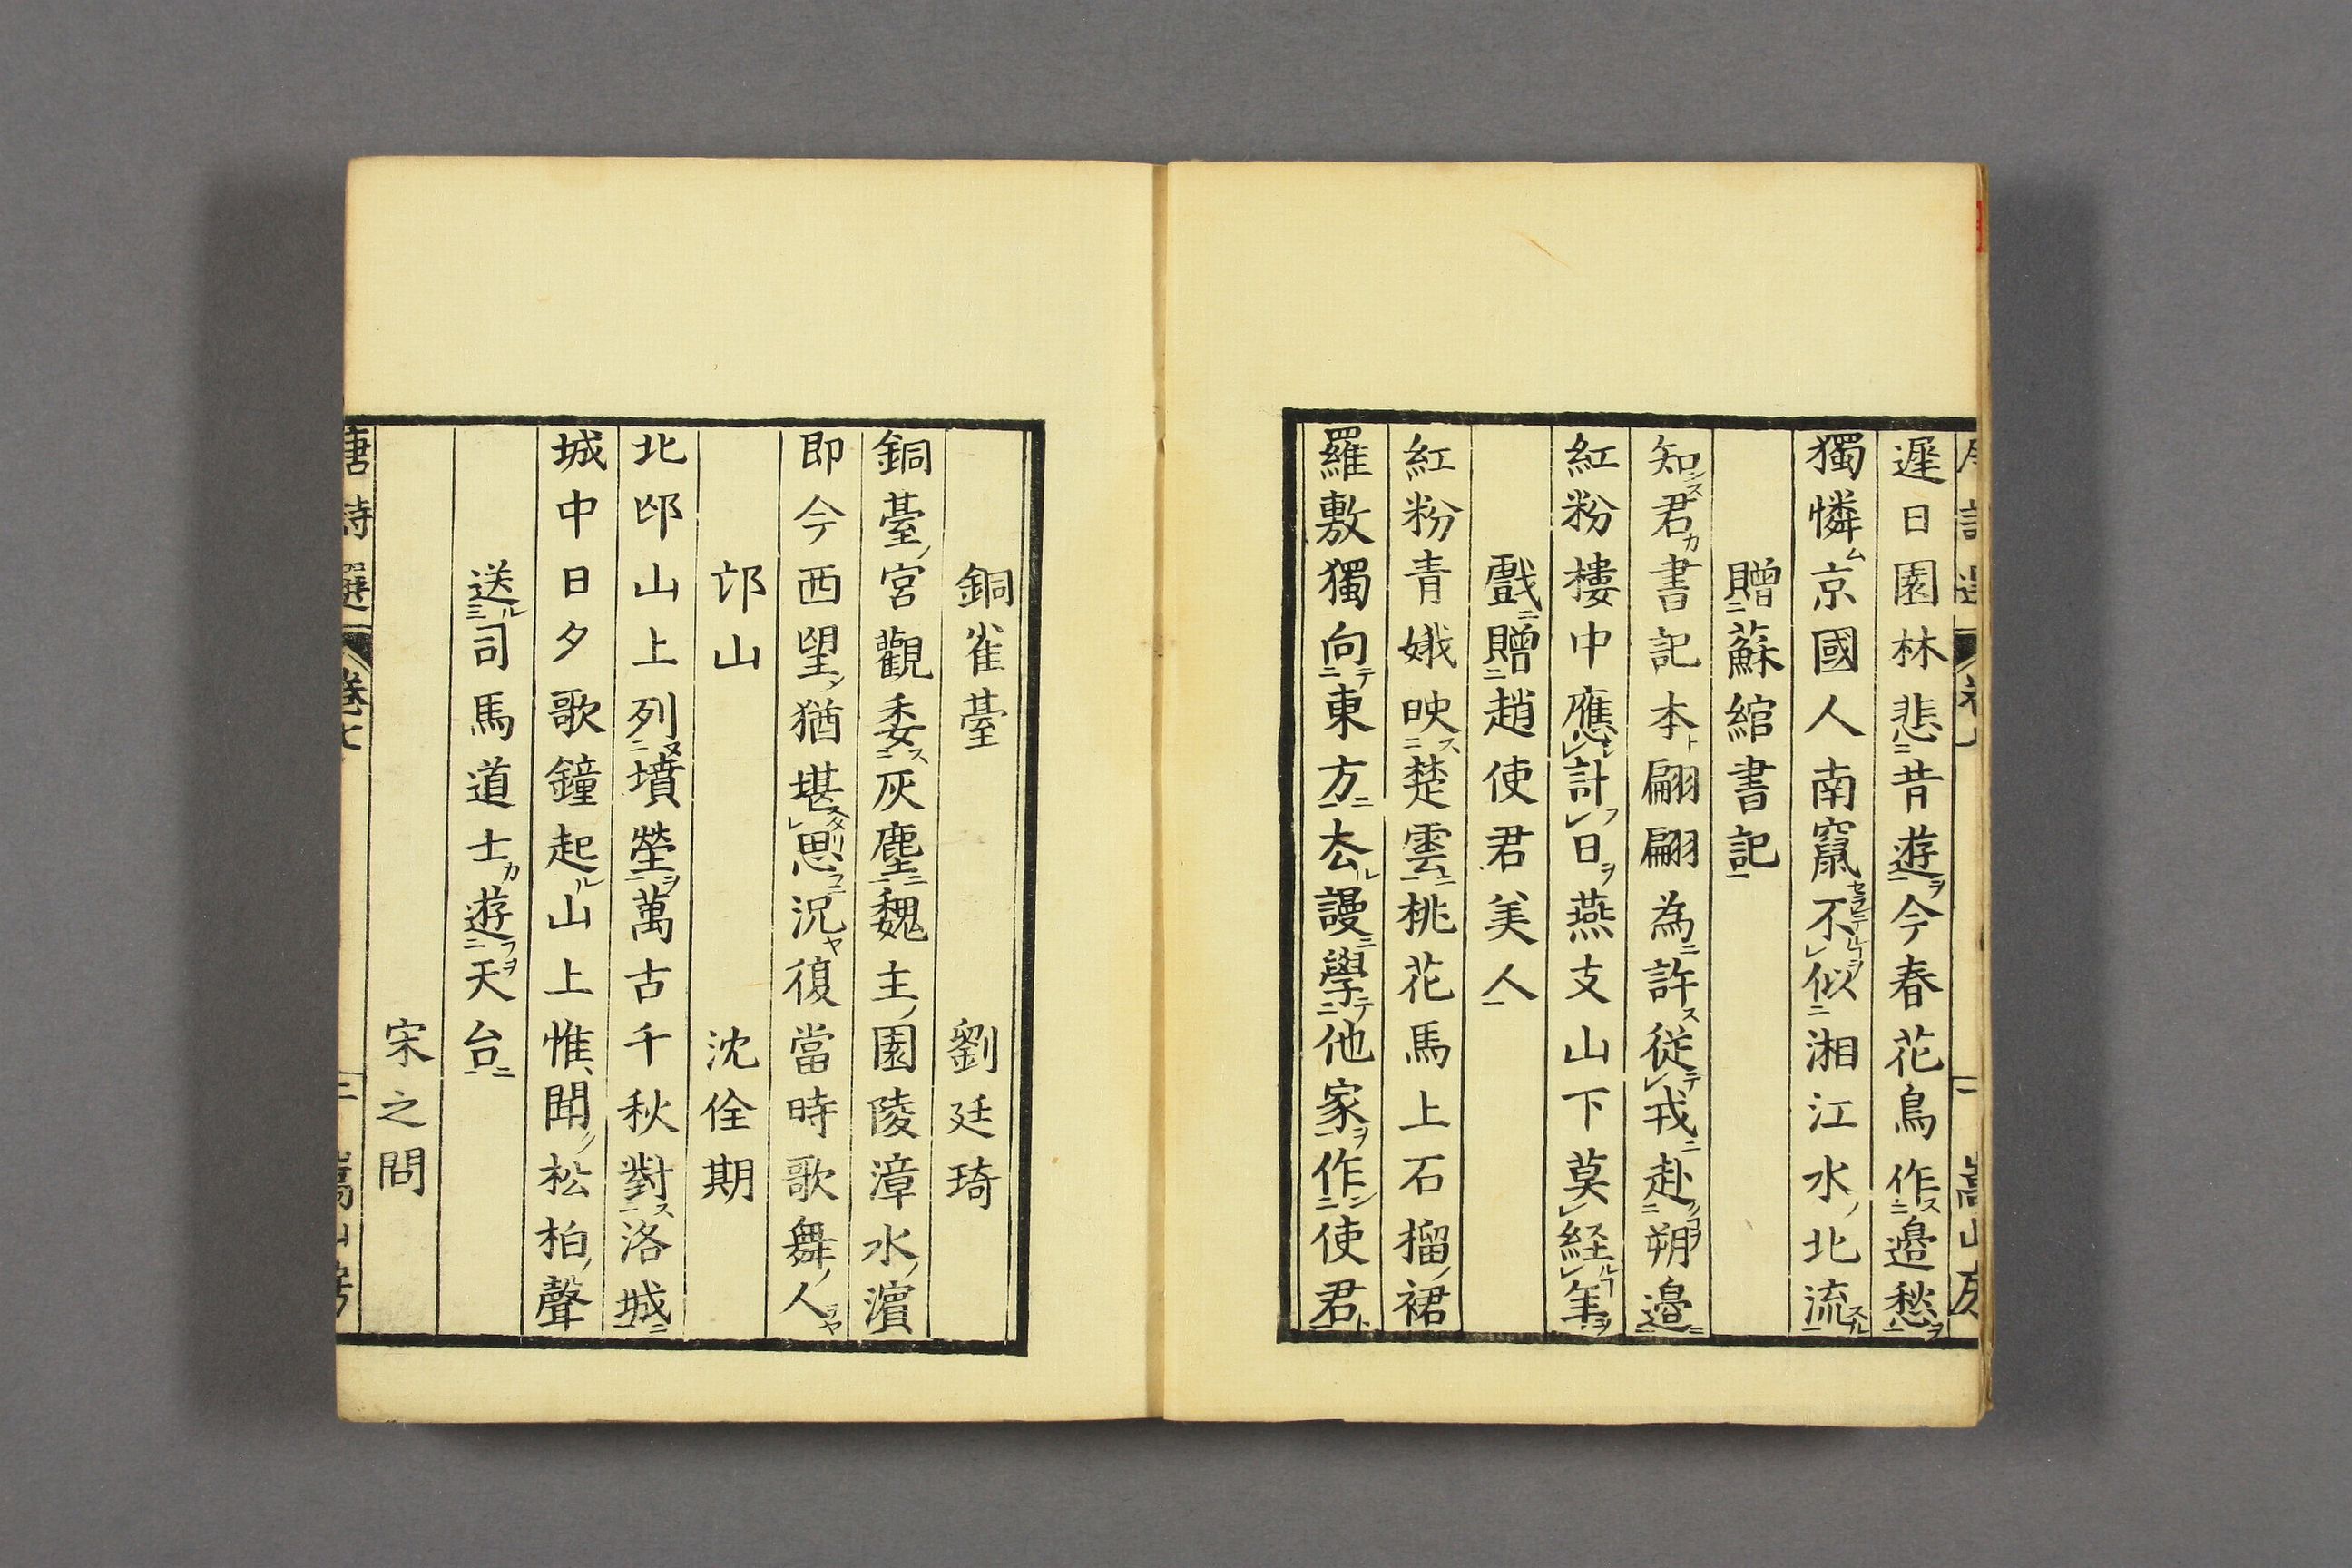 遲日園林悲昔遊今春花鳥作邉愁
獨憐京國人南竄不似湘江水北流
贈蘇綰書記
知君書記本翩翩為許從戎赴朔邉
紅粉樓中應計日燕支山下莫経年
戲贈趙使君美人
紅粉青娥映楚雲桃花馬上石榴裙
羅敷獨向東方去謾學他家作使君
銅雀臺　劉廷琦
銅臺宮觀委灰塵魏主園陵漳水濵
即今西望猶堪思況復當時歌舞人
邙山　沈佺期
北邙山上列墳塋萬古千秋對洛城
城中日夕歌鐘起山上惟聞松柏聲
送司馬道士遊天台
宋之問
唐詩選　卷七　二　嵩山房